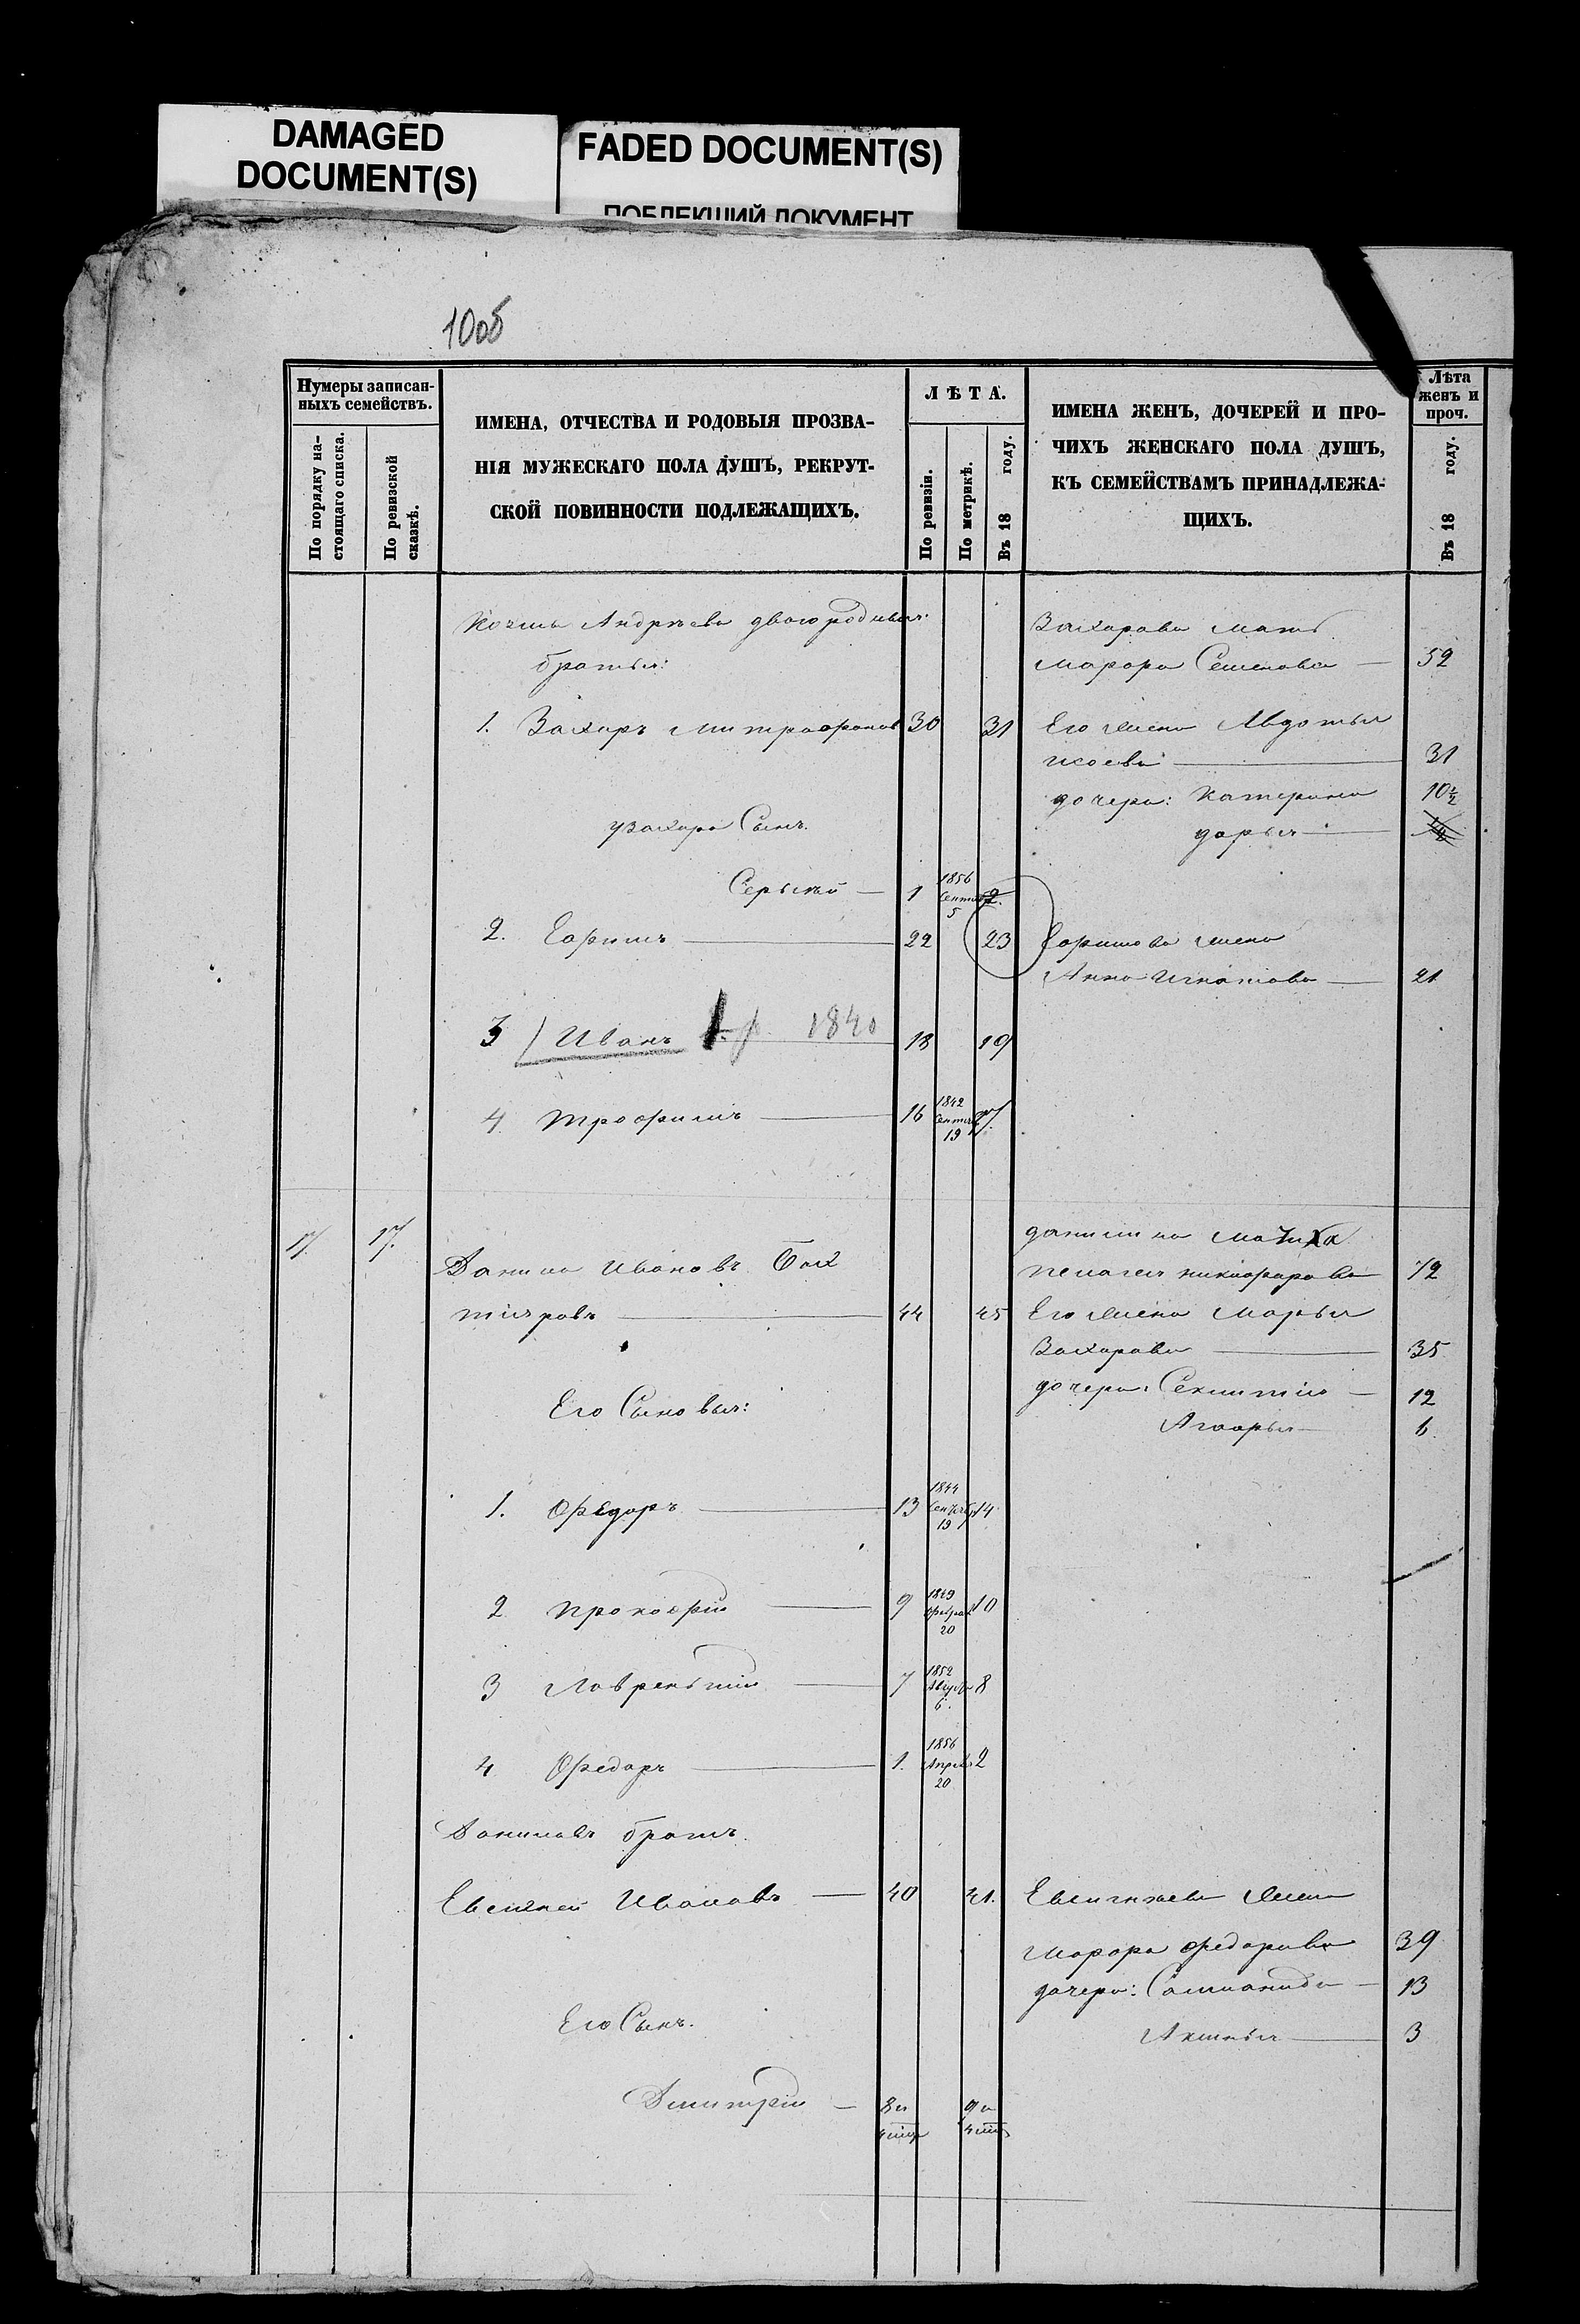 DAMAGED
DOCUMENT(S)
FADED DOCUMENT(S)
ПОБЛЕКШИЙ ДОКУМЕНТ
10об
Нумеры записан-
ныхъ семействъ.
По порядку на-
стоящаго списка.
По ревизской
сказкѣ.
ИМЕНА, ОТЧЕСТВА И РОДОВЫЯ ПРОЗВА-
НІЯ МУЖЕСКАГО ПОЛА ДУШЪ, РЕКРУТ-
СКОЙ ПОВИННОСТИ ПОДЛЕЖАЩИХЪ.
ЛѢТА.
По ревизіи.
По метрикѣ.
Въ 18 году.
ИМЕНА ЖЕНЪ, ДОЧЕРЕЙ И ПРО-
ЧИХЪ ЖЕНСКАГО ПОЛА ДУШЪ,
КЪ СЕМЕЙСТВАМЪ ПРИНАДЛЕЖА-
ЩИХЪ.
Лѣта
женъ и
проч.
Въ 18 году.
Андрѣева двоюродныя
братья:
Захарова мать
Марфа Семенова 52
1. Захаръ Митрофановъ 30 31
Его жена Авдотья
31
дочери: Катерина 10½
Дарья
у Захара Сынъ.
Сергѣй 1 1856 Сентяб 5 2.
2. Ефимъ 22 23
Ефимова жена
Анна Игнатова 21
3 Иванъ 1840 18 19
4 Трофимъ 16 1842 Сентяб 19 17
17 17.
Данило Ивановъ Бах
тіяровъ 44 45
Данилина мачиха
Пелагея Никифорова 72
Его жена Марья
Захарова 35
дочери: Секлитія 12
Агафья 6
Его Сыновья:
1. Федоръ 13 1844 Сентяб 19 14
2 Прокофій 9 1849 Февраля 20 10
3 Лаврентій 7 1852 Августа 6. 8
4 Федоръ 1. 1856 Апреля 20 2
Даниловъ братъ
Евсигней Ивановъ 40 41.
Евсигнѣева жена
Марфа Федорова 39
дочери: Саломанида 13
Аксинья 3
Его Сынъ.
Дмитрій 8 и 9 и